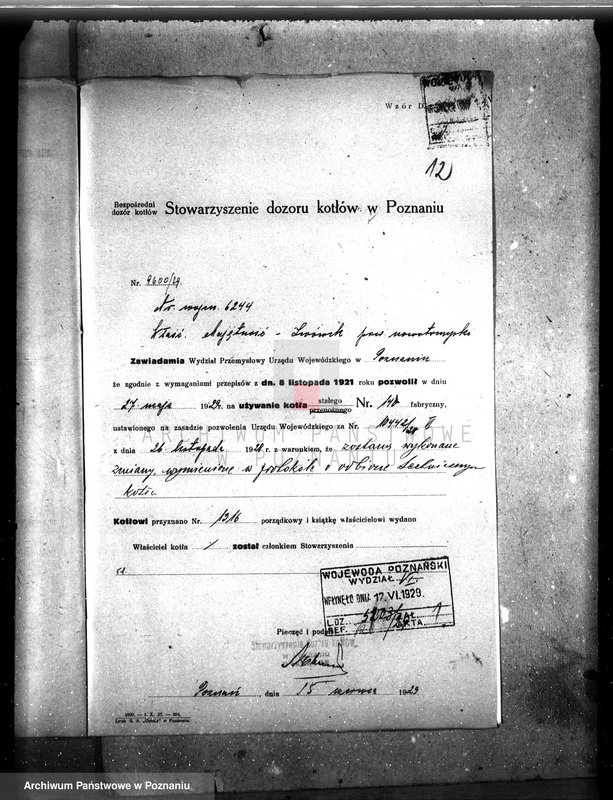 Wzór D.
12
Bezpośredni
dozór kotłów
Stowarzyszenie dozoru kotłów w Poznaniu
Nr. 9600/29
Nr. wojew. 6244
Właśc. Majętność - Lwówek pow nowotomyski
Zawiadamia Wydział Przemysłowy Urzędu Wojewódzkiego w Poznaniu
że zgodnie z wymaganiami przepisów z dn. 8 listopada 1921 roku pozwolił w dniu
27 maja 1929. na używanie kotła stałego przenośnego Nr. 148 fabryczny,
ustawionego na zasadzie pozwolenia Urzędu Wojewódzkiego za Nr. 10442/28 II
z dnia 26 listopada 1928 r. z warunkiem, że zostaną wykonane
zmiany wymienione w protokole o odbiorze technicznym
kotła
Kotłowi przyznano Nr. 1316 porządkowy i książkę właścicielowi wydano
Właściciel kotła / został członkiem Stowarzyszenia
WOJEWODA POZNAŃSKI
WYDZIAŁ VI
WPŁYNĘŁO DNIA 17. VI. 1929.
L. DZ. 5203/ ZAŁ. 1
REF. AKTA
Pieczęć i podpis
Stowarzyszenie Dozoru Kotłów
w Poznaniu
Poznań, dnia 15 czerwca 1929
Archiwum Państwowe w Poznaniu
ARCHIWUM PAŃSTWOWE
W POZNANIU